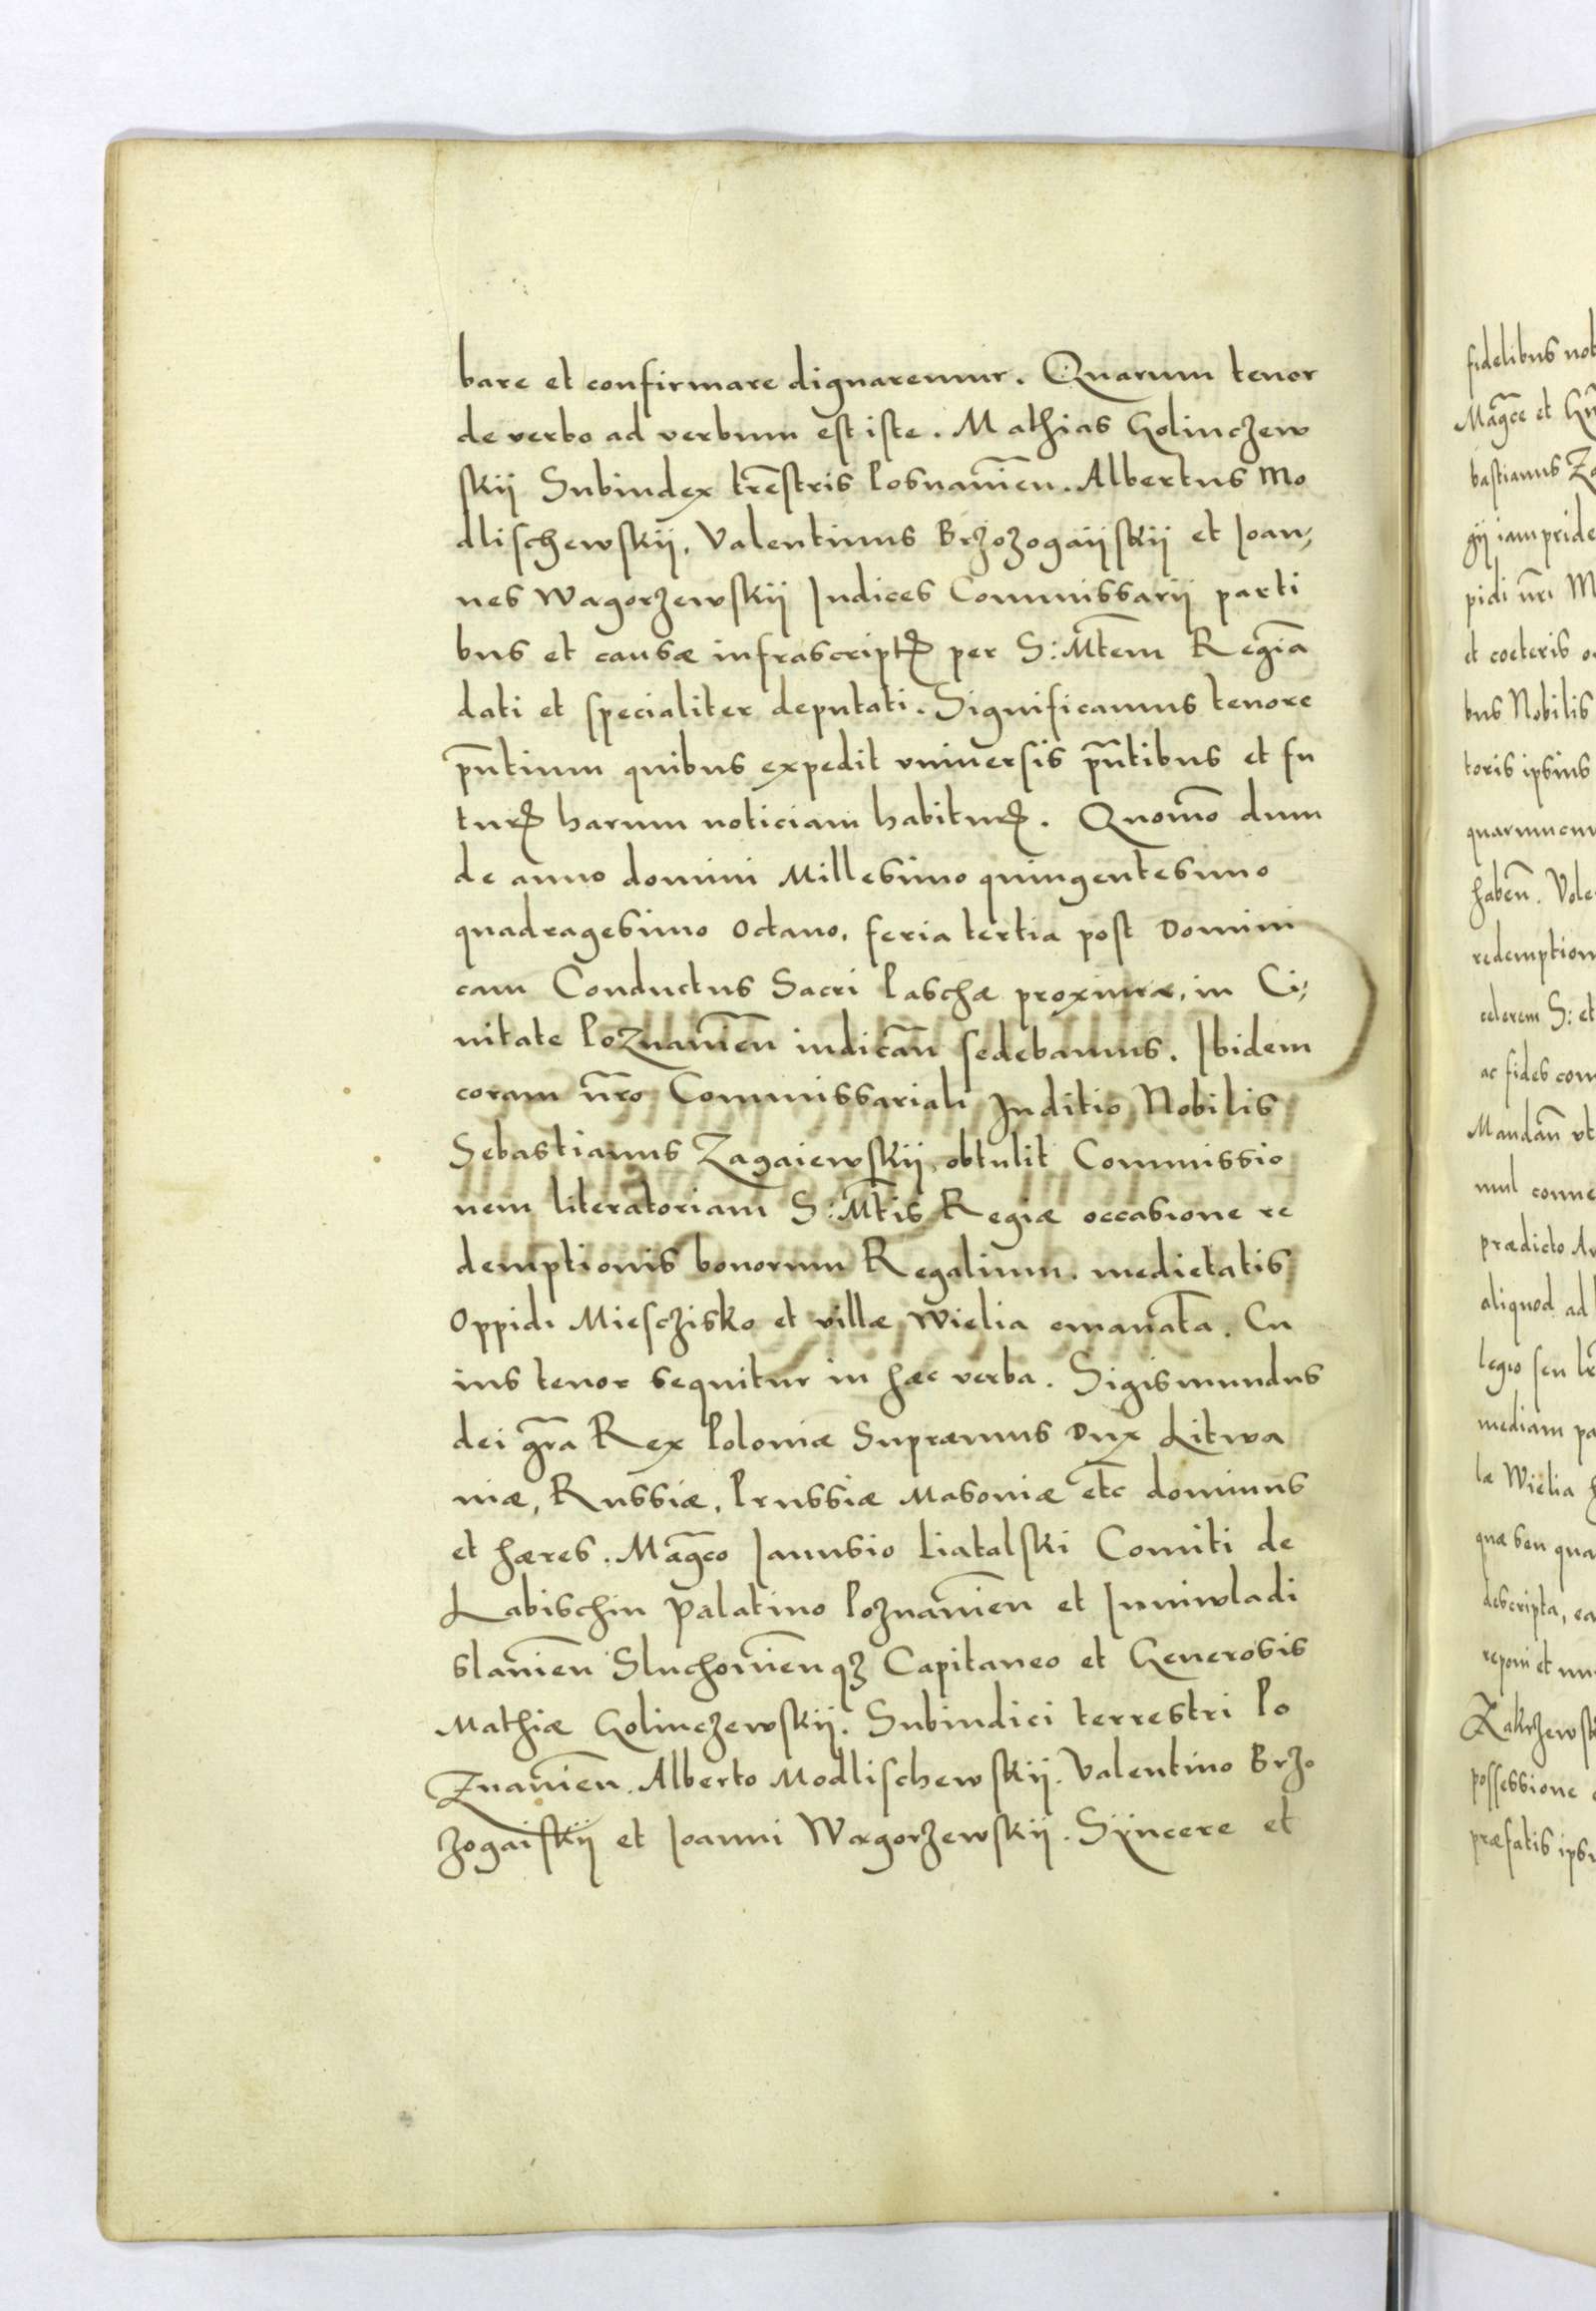 bare et confirmare dignaremur. Quarum tenor
de verbo ad verbum est iste. Mathias Golinczew
skij Subiudex tr̃estris Posnanien̄. Albertus Mo
dlischewskij, Valentinus Brzozogaijskij et Ioan;
nes Wagorzewskij Iudices Commissarij parti
bus et causæ infrascriptꝝ per S: Mtem Regiā
dati et specialiter deputati. Significamus tenore
pn̄tium quibus expedit vniuersis pn̄tibus et fu
turꝝ harum noticiam habiturꝝ. Quom̄o dum
de anno domini Millesimo quingentesimo
quadragesimo octauo, feria tertia post Domini
cam Conductus Sacri Paschæ proximæ, in Ci;
uitate Poznanien̄ iudican̄ sedebamus. Ibidem
coram nr̄o Commissariali Iuditio Nobilis
Sebastianus Zagaiewskij, obtulit Commissio
nem literatoriam S: Mtis Regiæ occasione re
demptionis bonorum Regalium. medietatis
Oppidi Miesczisko et villæ Wielia emanata. Cu
ius tenor sequitur in hæc verba. Sigismundus
dei gr̄a Rex Poloniæ Supræmus Dux Litwa
niæ, Russiæ, Prussiæ Masoniæ etc̄ dominus
et hæres. Mag̃co Ianusio Liatalski Comiti de
Labischin Palatino Poznanien̄ et Iuniwladi
slauien̄ Sluchouien̄ qꝫ Capitaneo et Generosis
Mathiæ Golinczewskij. Subiudici terrestri Po
Znanien̄. Alberto Modlischewskij. Valentino Brzo
zogaiskij et Ioanni Wagorzewskij. Sÿncere et
fidelibus
Mag̃ce et
bastianus
pidi nr̄i
et coeteris
bus Nobilis
toris ipsius
haben̄.
celerem S: et
ac fides
Mandan̄ vt
prædicto
aliquod ad
legio seu
mediam
læ Wielia
quæ seu
descripta,
reponi et
possessione
præfatis